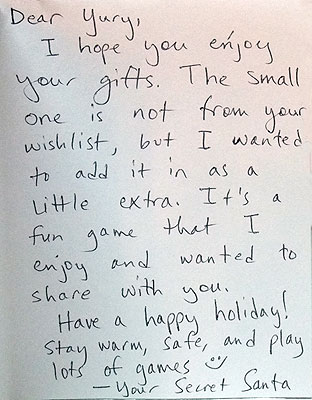 Dear Yury,
I hope you enjoy
your gifts. The small
one is not from your
wishlist, but I wanted
to add it in as a
little extra. It's a
fun game that I
enjoy and wanted to
share with you.
Have a happy holiday!
Stay warm, safe, and play
lots of games
—Your Secret Santa